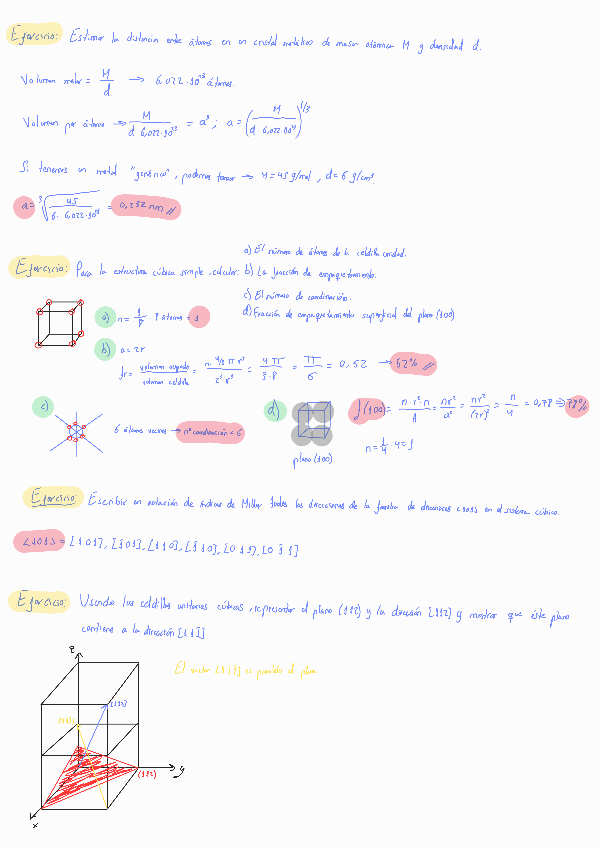 Ejercicio: Estimar la distancia entre átomos en un cristal metálico de masa atómica M y densidad d.
Volumen molar = M/d → 6,022·10²³ átomos
Volumen por átomo → M/(d·6,022·10²³) = a³; a = (M/(d·6,022·10²³))^(1/3)
Si tenemos un metal "genérico", podemos tomar → M = 45 g/mol, d = 6 g/cm³
a = ∛(45/(6·6,022·10²³)) = 0,232 nm //
Ejercicio: Para la estructura cúbica simple, calcular:
a) El número de átomos de la celdilla unidad.
b) La fracción de empaquetamiento.
c) El número de coordinación.
d) Fracción de empaquetamiento superficial del plano (100)
a) n = 1/8 · 8 átomos = 1
b) a = 2r
fr = volumen ocupado/volumen celdilla = n·4/3 π r³/2³r³ = 4π/3·8 = π/6 = 0,52 → 52% //
c) 6 átomos vecinos → nº coordinación = 6
d) plano (100)
f(100) = n·r²·π/A = πr²/a² = πr²/(2r)² = π/4 = 0,78 ⇒ 78%
n = 1/4 · 4 = 1
Ejercicio: Escribir en notación de índices de Miller todas las direcciones de la familia de direcciones <101> en el sistema cúbico.
<101> = [101], [1̄01], [110], [1̄10], [011], [01̄1]
Ejercicio: Usando las celdillas unitarias cúbicas, representar el plano (112) y la dirección [112] y mostrar que éste plano
contiene a la dirección [111̄]
El vector [111̄] es paralelo al plano.
z
[112]
[111̄]
(112)
y
x